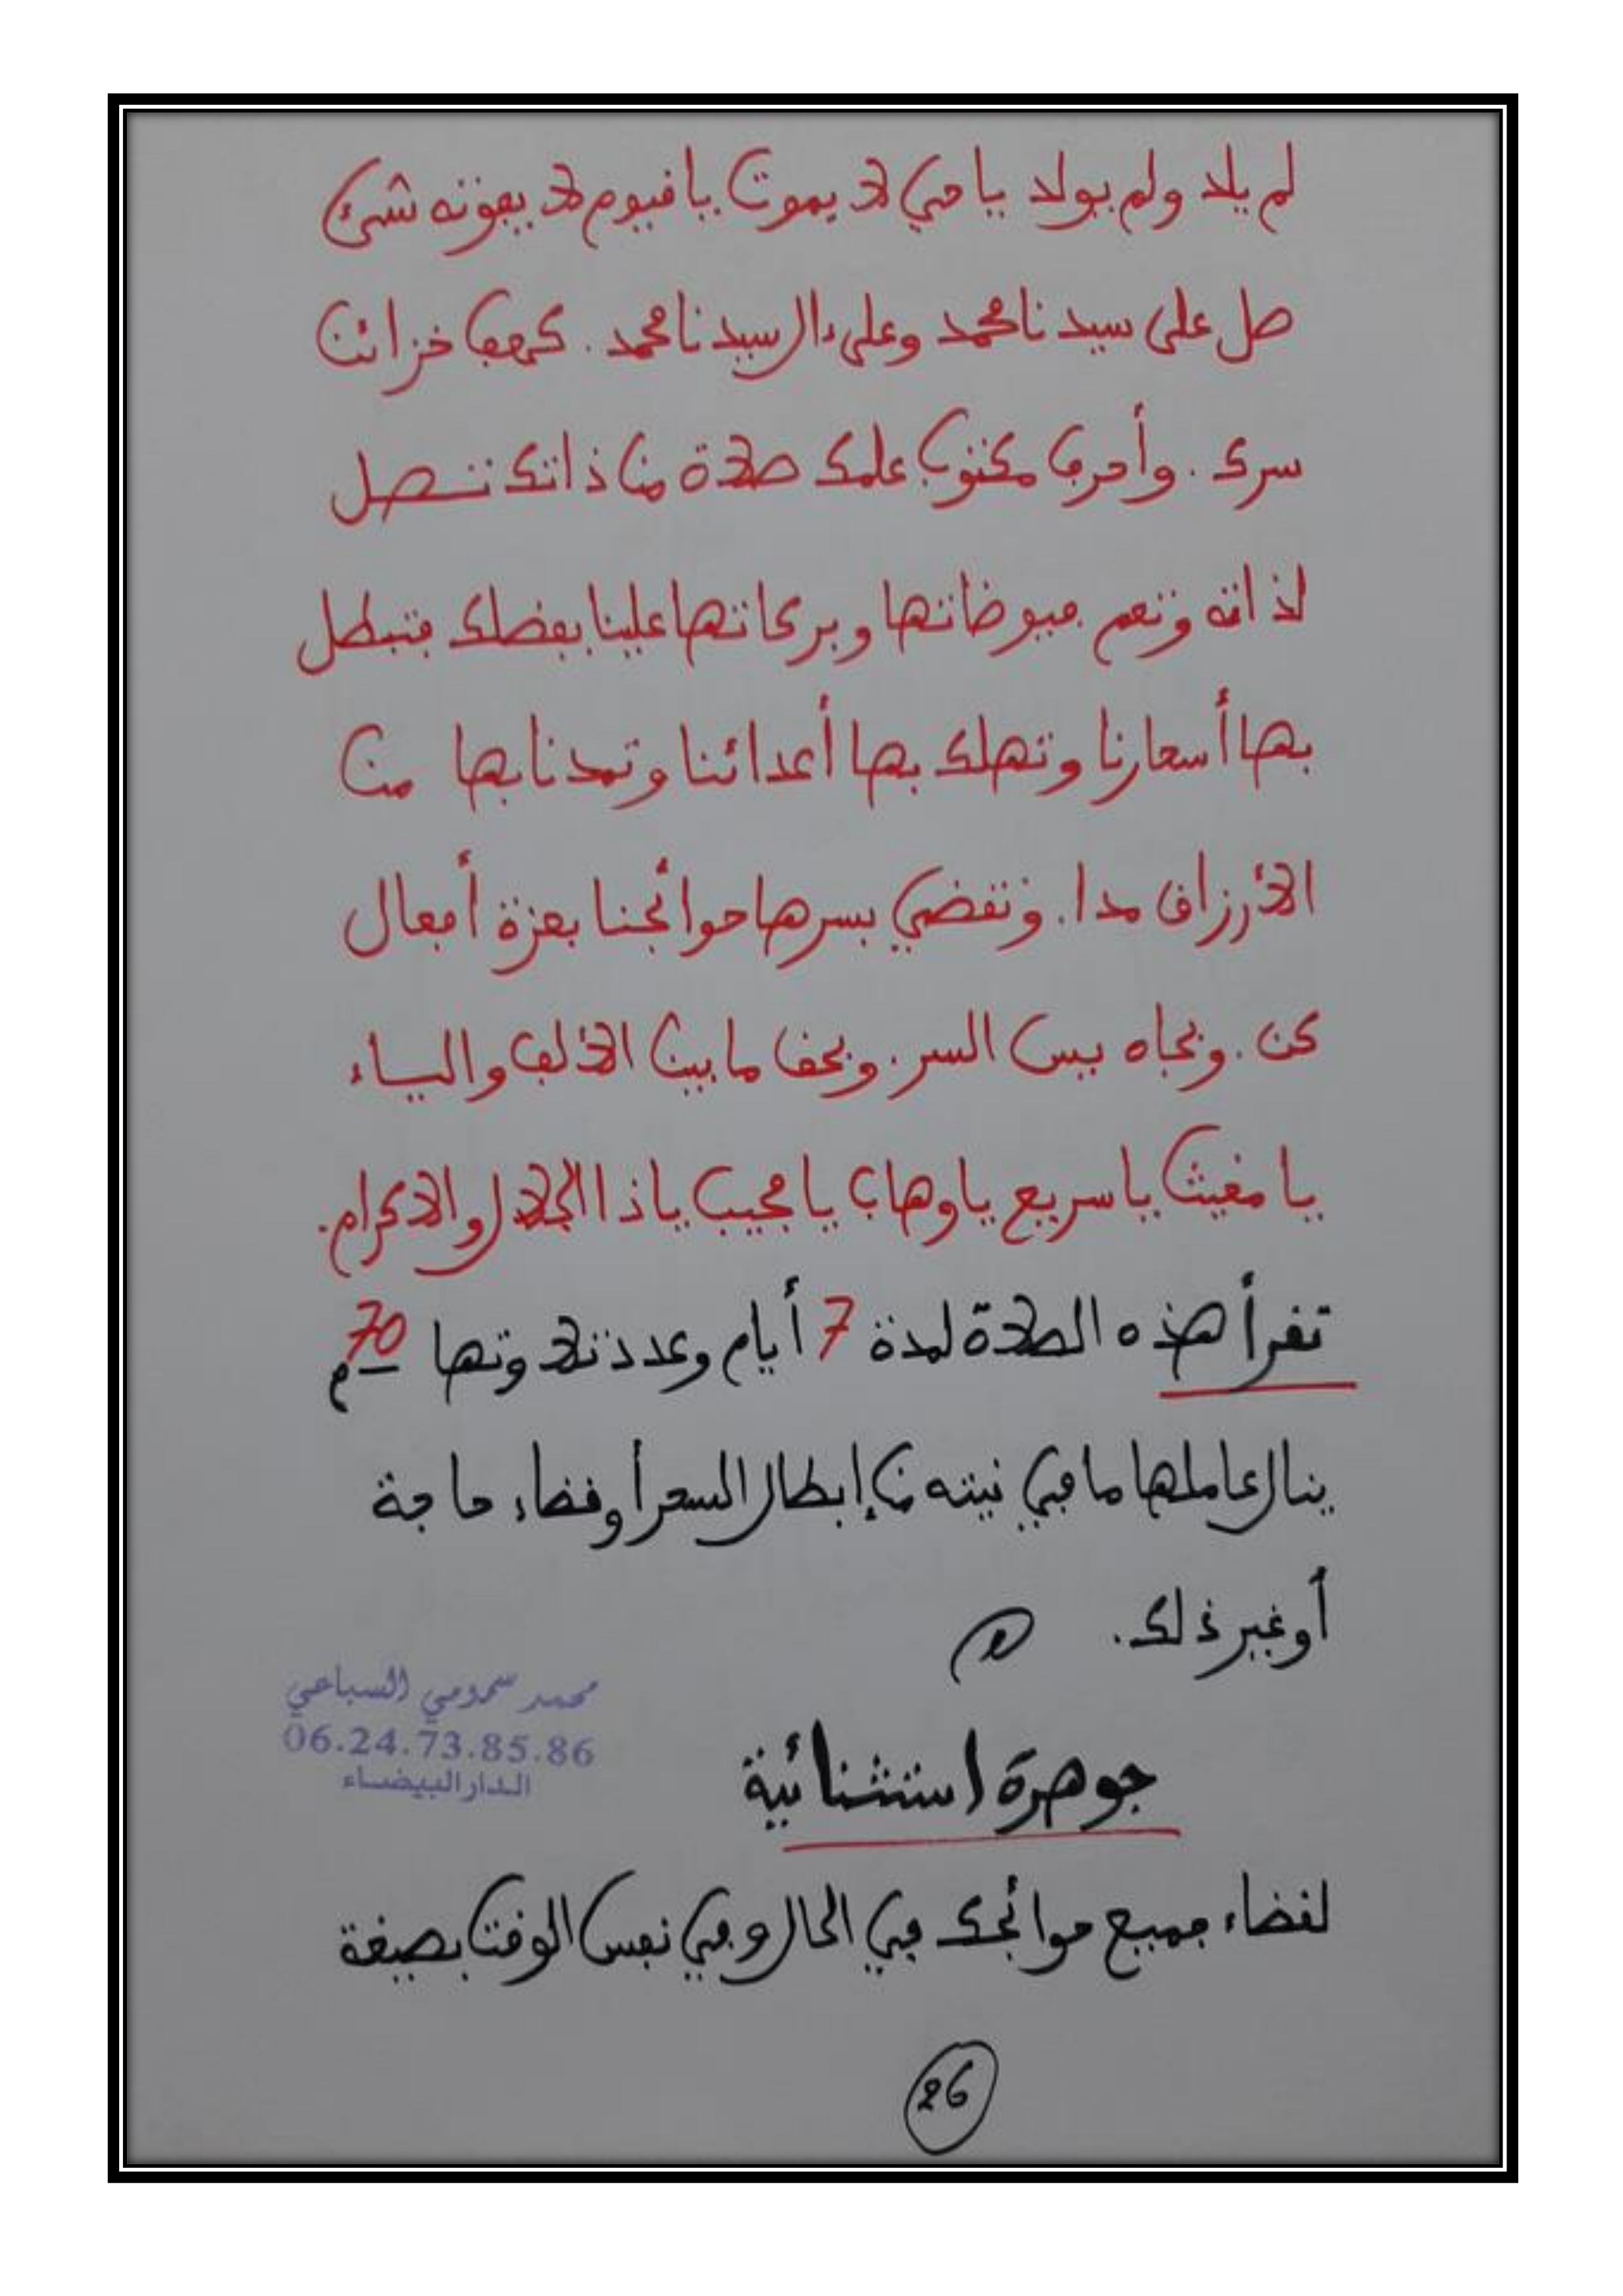 لم يلد ولم يولد يا حي لا يموت يا قيوم لا يفوته شيء
صل على سيدنا محمد وعلى ءال سيدنا محمد . كهف خزائن
سرك . وأحرف مكنون علمك صلاة من ذاتك تتصل
لذاته وتعم فيوضاتها وبركاتها علينا بفضلك فتبطل
بها أسحارنا وتهلك بها أعدائنا وتمدنا بها من
الأرزاق مدا . وتقضي بسرها حوائجنا بعزة أفعال
كن . وبجاه يس السر . وبحق ما بين الألف والياء
يا مغيث يا سريع يا وهاب يا مجيب يا ذا الجلال والاكرام .
تقرأ هذه الصلاة لمدة 7 أيام وعدد تلاوتها 70 م
ينال عاملها ما في نيته من إبطال السحر أو قضاء حاجة
أو غير ذلك .
محمد سمومي السباعي
06.24.73.85.86
الدار البيضاء
جوهرة استثنائية
لقضاء جميع حوائجك في الحال وفي نفس الوقت بصيغة
26